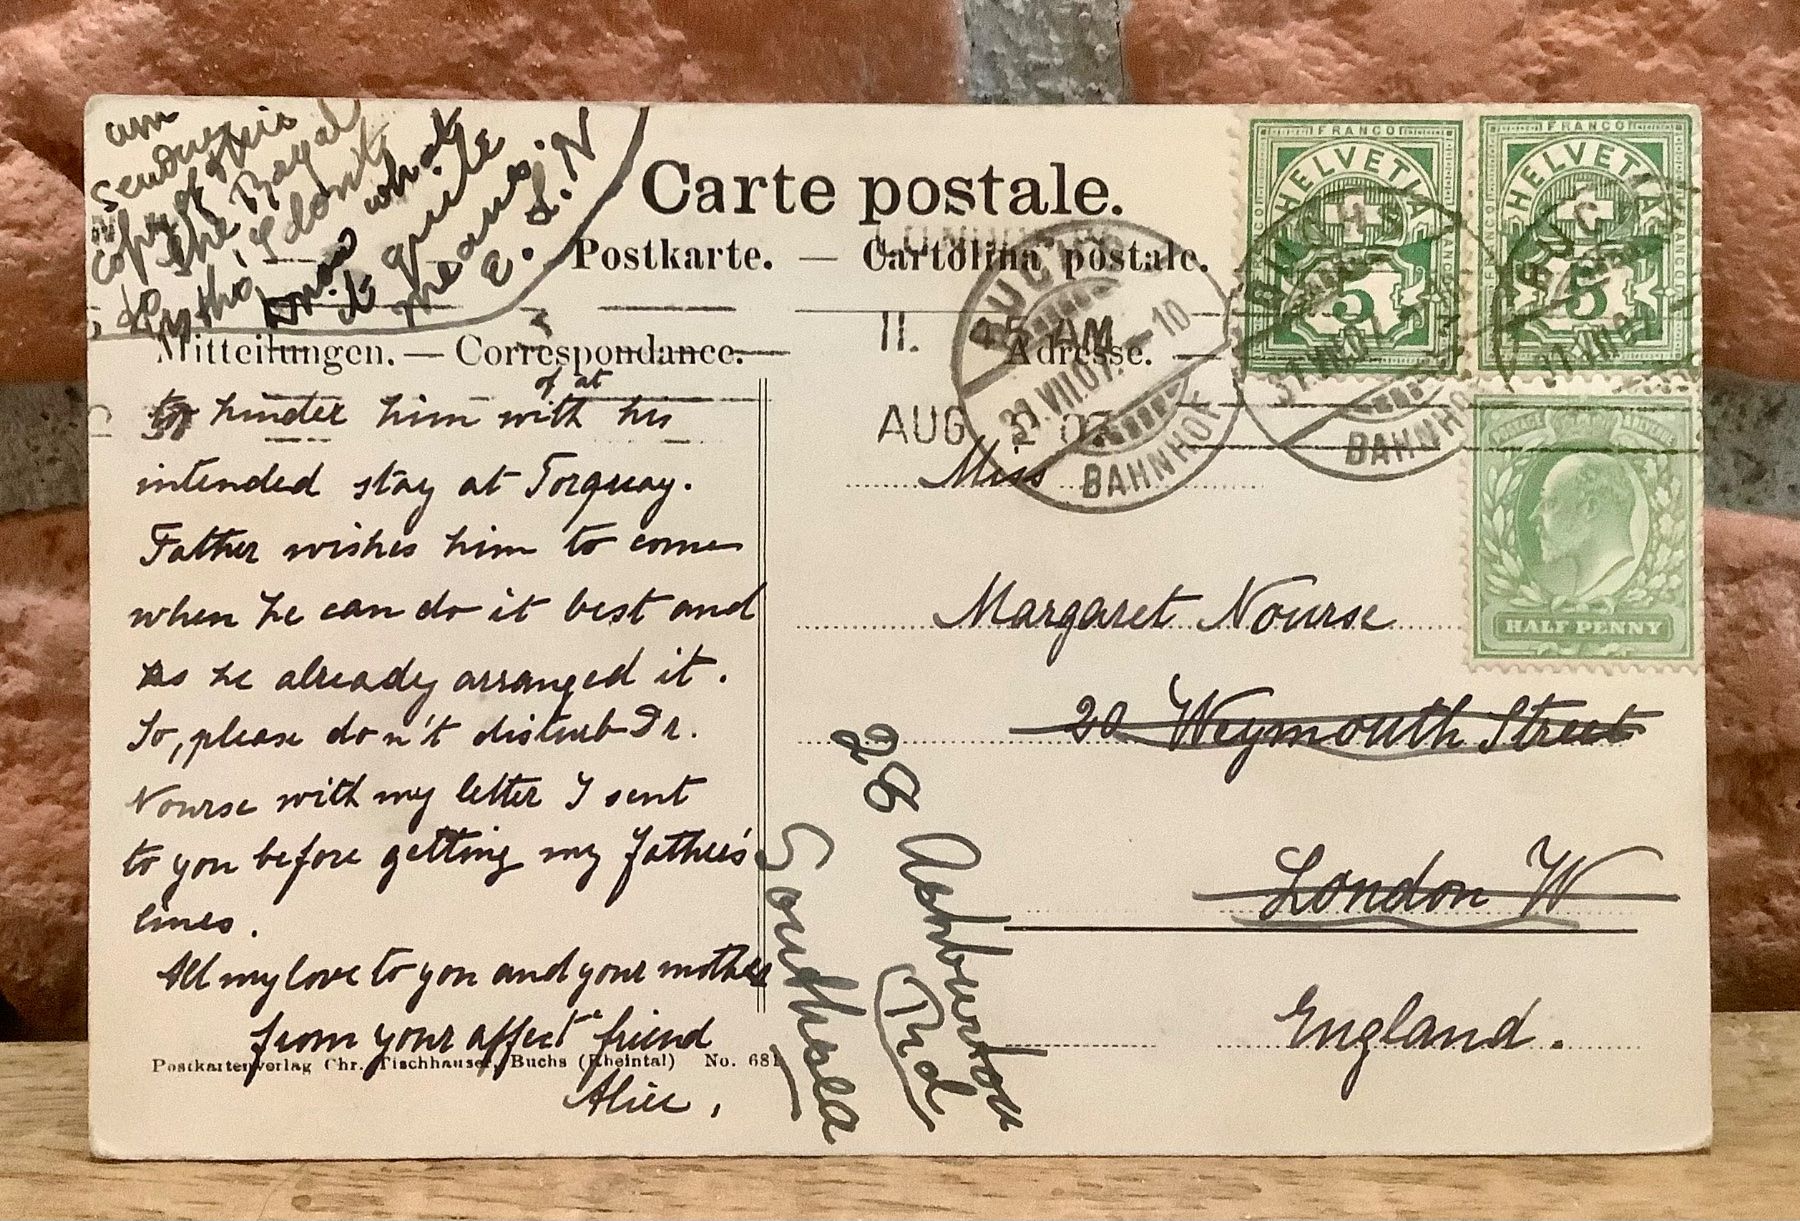 am
sending
copy of this
to the Royal
I don't
know what
it quite
means.
E. S. N
Carte postale.
Postkarte. — Cartolina postale.
Mitteilungen. — Correspondance.
Adresse.
to hinder him with his
of at
intended stay at Torquay.
Father wishes him to come
when he can do it best and
as he already arranged it.
So, please don't disturb Dr.
Nourse with my letter I sent
to you before getting my father's
lines.
All my love to you and your mother
from your affect friend
Alice,
Postkartenverlag Chr. Tischhauser, Buchs (Rheintal) No. 681
Miss
Margaret Nourse
20 Weymouth Street
London W
England.
28 Ashburton
Rd
Southsea
11. 45 AM
AUG 2 07
BUCHS
31.VII.07. — 10
BAHNHOF
BUCHS
31.VII.07
BAHNHO
BUC
31.VII.0
FRANCO
HELVETIA
5
FRANCO
HELVETIA
5
HALF PENNY